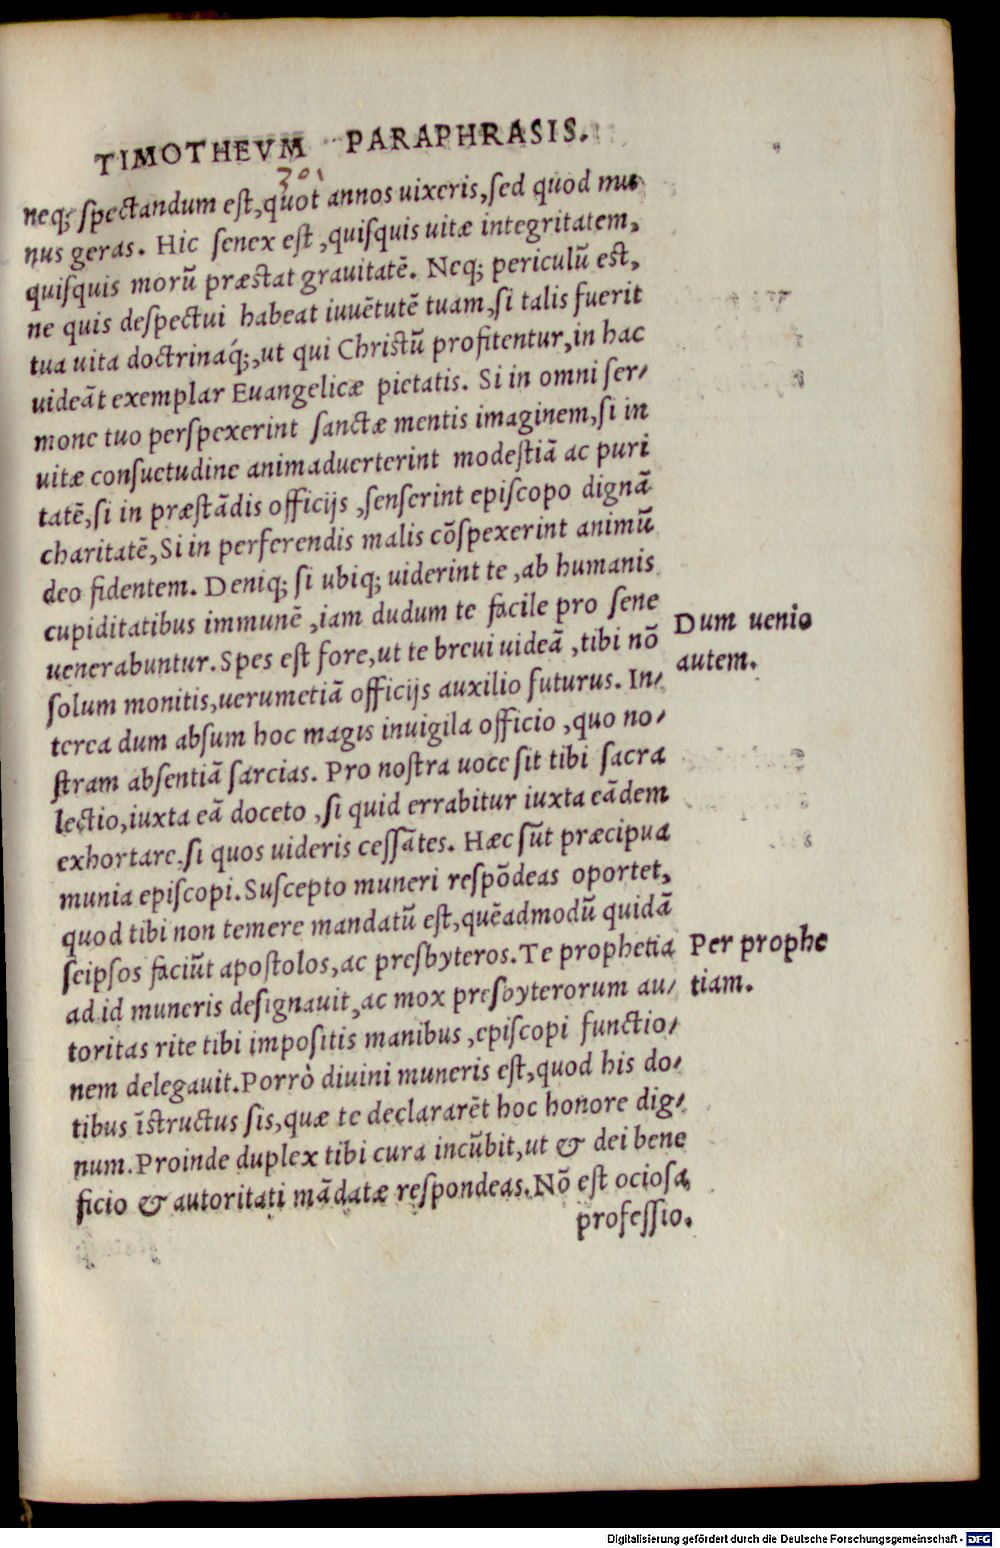 TIMOTHEVM PARAPHRASIS.
301
neq; ſpectandum eſt, quot annos uixeris, ſed quod mu-
nus geras. Hic ſenex eſt, quiſquis uitæ integritatem,
quiſquis morũ præſtat grauitatẽ. Neq; periculũ eſt,
ne quis deſpectui habeat iuuẽtutẽ tuam, ſi talis fuerit
tua uita doctrinaq́;, ut qui Chriſtũ profitentur, in hac
uideãt exemplar Euangelicæ pietatis. Si in omni ſer-
mone tuo perſpexerint ſanctæ mentis imaginem, ſi in
uitæ conſuetudine animaduerterint modeſtiã ac puri
tatẽ, ſi in præſtãdis officijs, ſenſerint epiſcopo dignã
charitatẽ, Si in perferendis malis cõſpexerint animũ
deo fidentem. Deniq; ſi ubiq; uiderint te, ab humanis
cupiditatibus immunẽ, iam dudum te facile pro ſene
uenerabuntur. Spes eſt fore, ut te breui uideã, tibi nõ
Dum uenio
autem.
ſolum monitis, uerumetiã officijs auxilio futurus. In-
terea dum abſum hoc magis inuigila officio, quo no-
ſtram abſentiã ſarcias. Pro noſtra uoce ſit tibi ſacra
lectio, iuxta eã doceto, ſi quid errabitur iuxta eãdem
exhortare. ſi quos uideris ceſſãtes. Hæc ſũt præcipua
munia epiſcopi. Suſcepto muneri reſpõdeas oportet,
quod tibi non temere mandatũ eſt, quẽadmodũ quidã
ſeipſos faciũt apoſtolos, ac presbyteros. Te prophetia
Per prophe
tiam.
ad id muneris deſignauit, ac mox presbyterorum au-
toritas rite tibi impoſitis manibus, epiſcopi functio-
nem delegauit. Porrò diuini muneris eſt, quod his do-
tibus ĩſtructus ſis, quæ te declararẽt hoc honore dig-
num. Proinde duplex tibi cura incũbit, ut & dei bene
ficio & autoritati mãdatæ reſpondeas. Nõ eſt ocioſa
profeſſio.
Digitalisierung gefördert durch die Deutsche Forschungsgemeinschaft - DFG